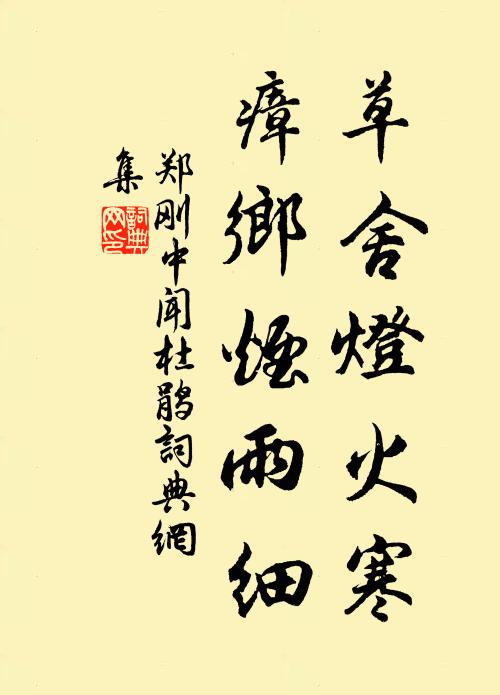 草舍燈火寒
瘴鄉煙雨細
郑刚中闻杜鹃詞典網
集
詞典
网印